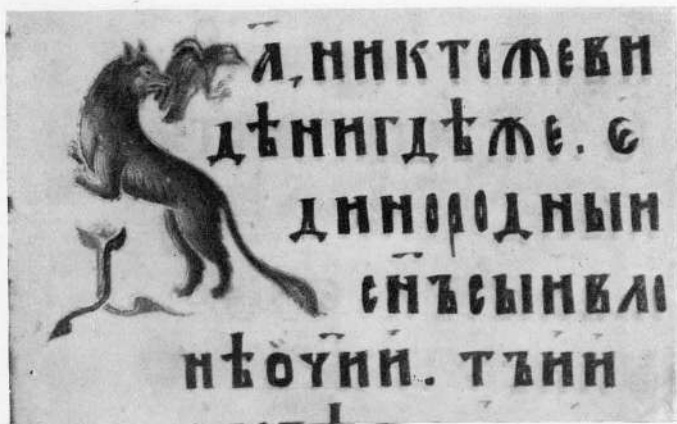 Ба, никтожеви
дѣнигдѣже. є
динородныи
сн҃ъсыивло
нѣочии. тъии